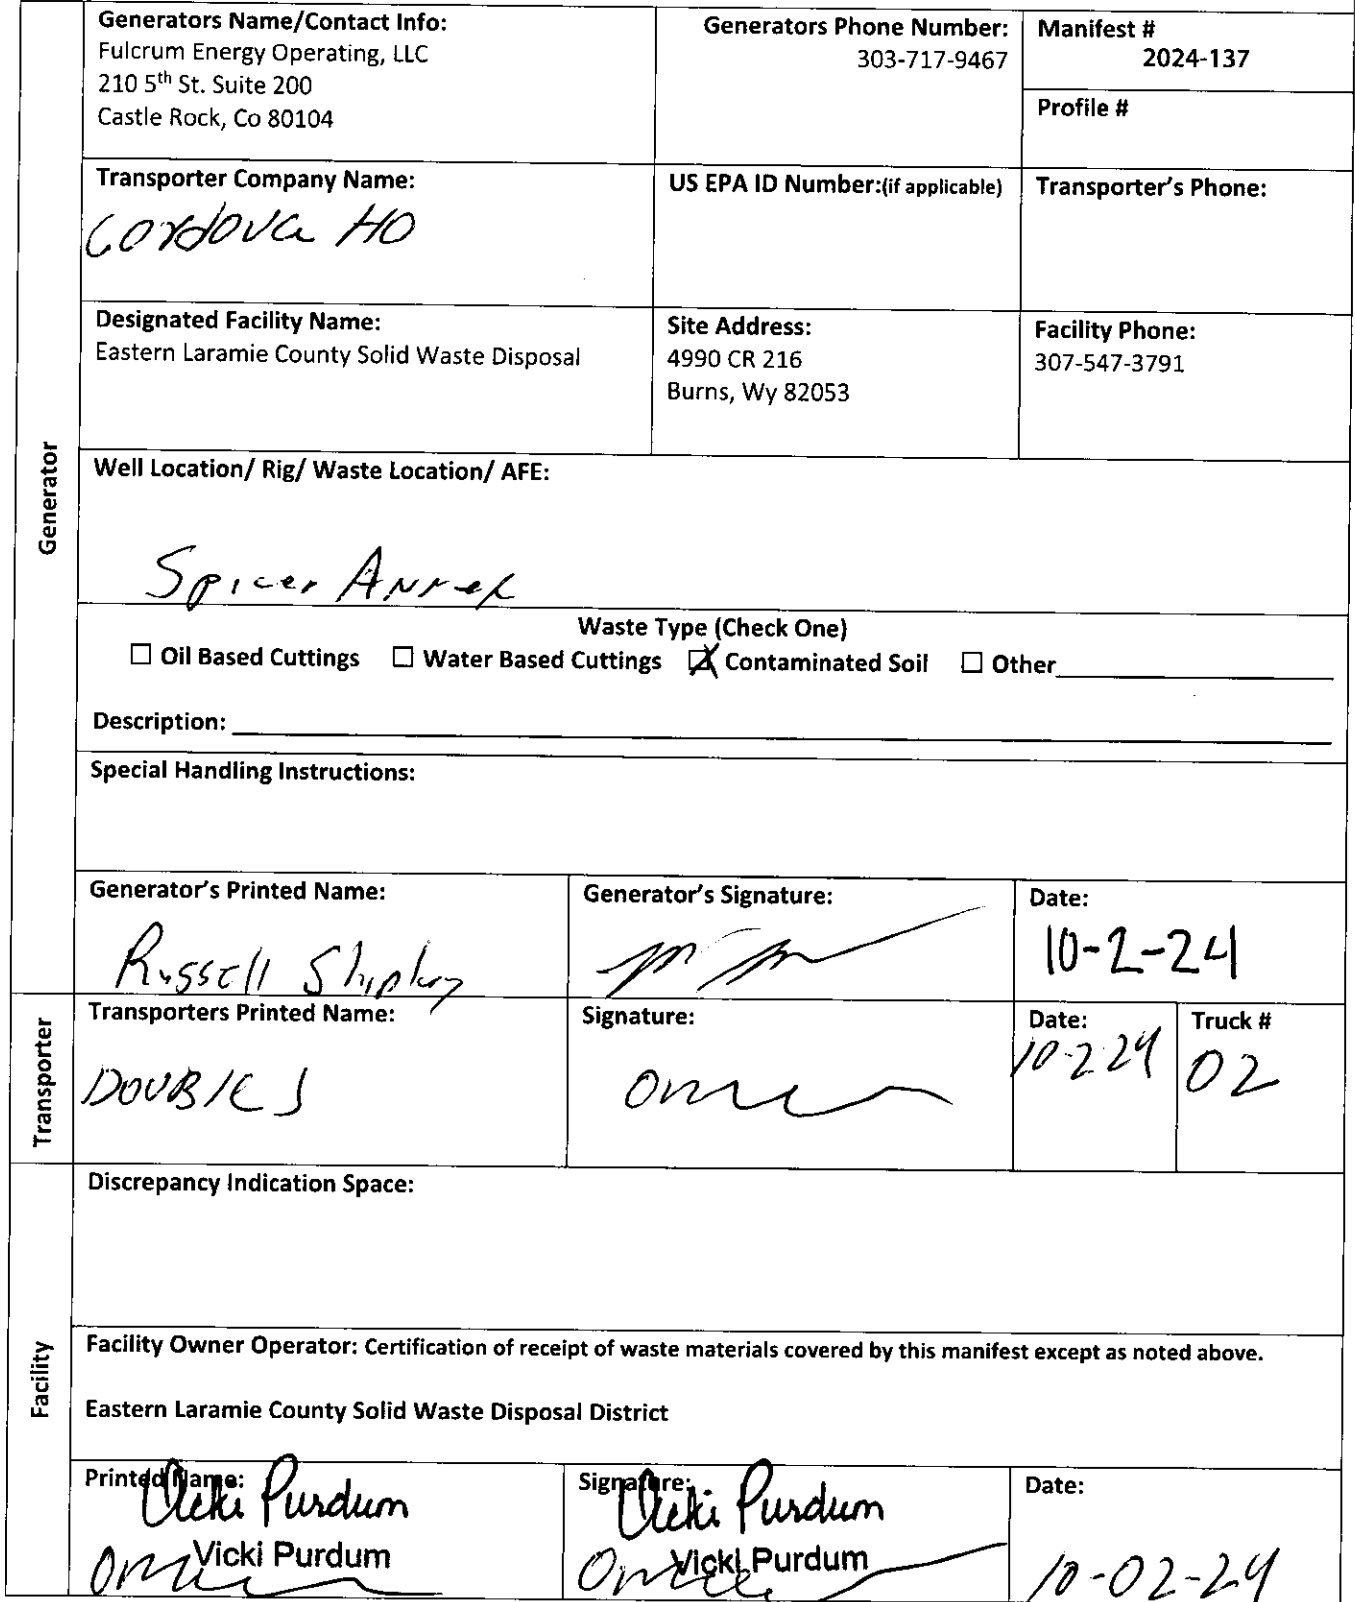 Generators Name/Contact Info:
Fulcrum Energy Operating, LLC
210 5th St. Suite 200
Castle Rock, Co 80104
Generators Phone Number:
303-717-9467
Manifest #
2024-137
Profile #
Transporter Company Name:
Cordova HO
US EPA ID Number:(if applicable)
Transporter's Phone:
Designated Facility Name:
Eastern Laramie County Solid Waste Disposal
Site Address:
4990 CR 216
Burns, Wy 82053
Facility Phone:
307-547-3791
Generator
Well Location/ Rig/ Waste Location/ AFE:
Spicer Annex
Waste Type (Check One)
☐ Oil Based Cuttings ☐ Water Based Cuttings ☒ Contaminated Soil ☐ Other
Description:
Special Handling Instructions:
Generator's Printed Name:
Russell Shipley
Generator's Signature:
Date:
10-2-24
Transporter
Transporters Printed Name:
DOUBLE J
Signature:
Date:
10-2-24
Truck #
02
Facility
Discrepancy Indication Space:
Facility Owner Operator: Certification of receipt of waste materials covered by this manifest except as noted above.
Eastern Laramie County Solid Waste Disposal District
Printed Name:
Vicki Purdum
Vicki Purdum
Signature:
Vicki Purdum
Vicki Purdum
Date:
10-02-24